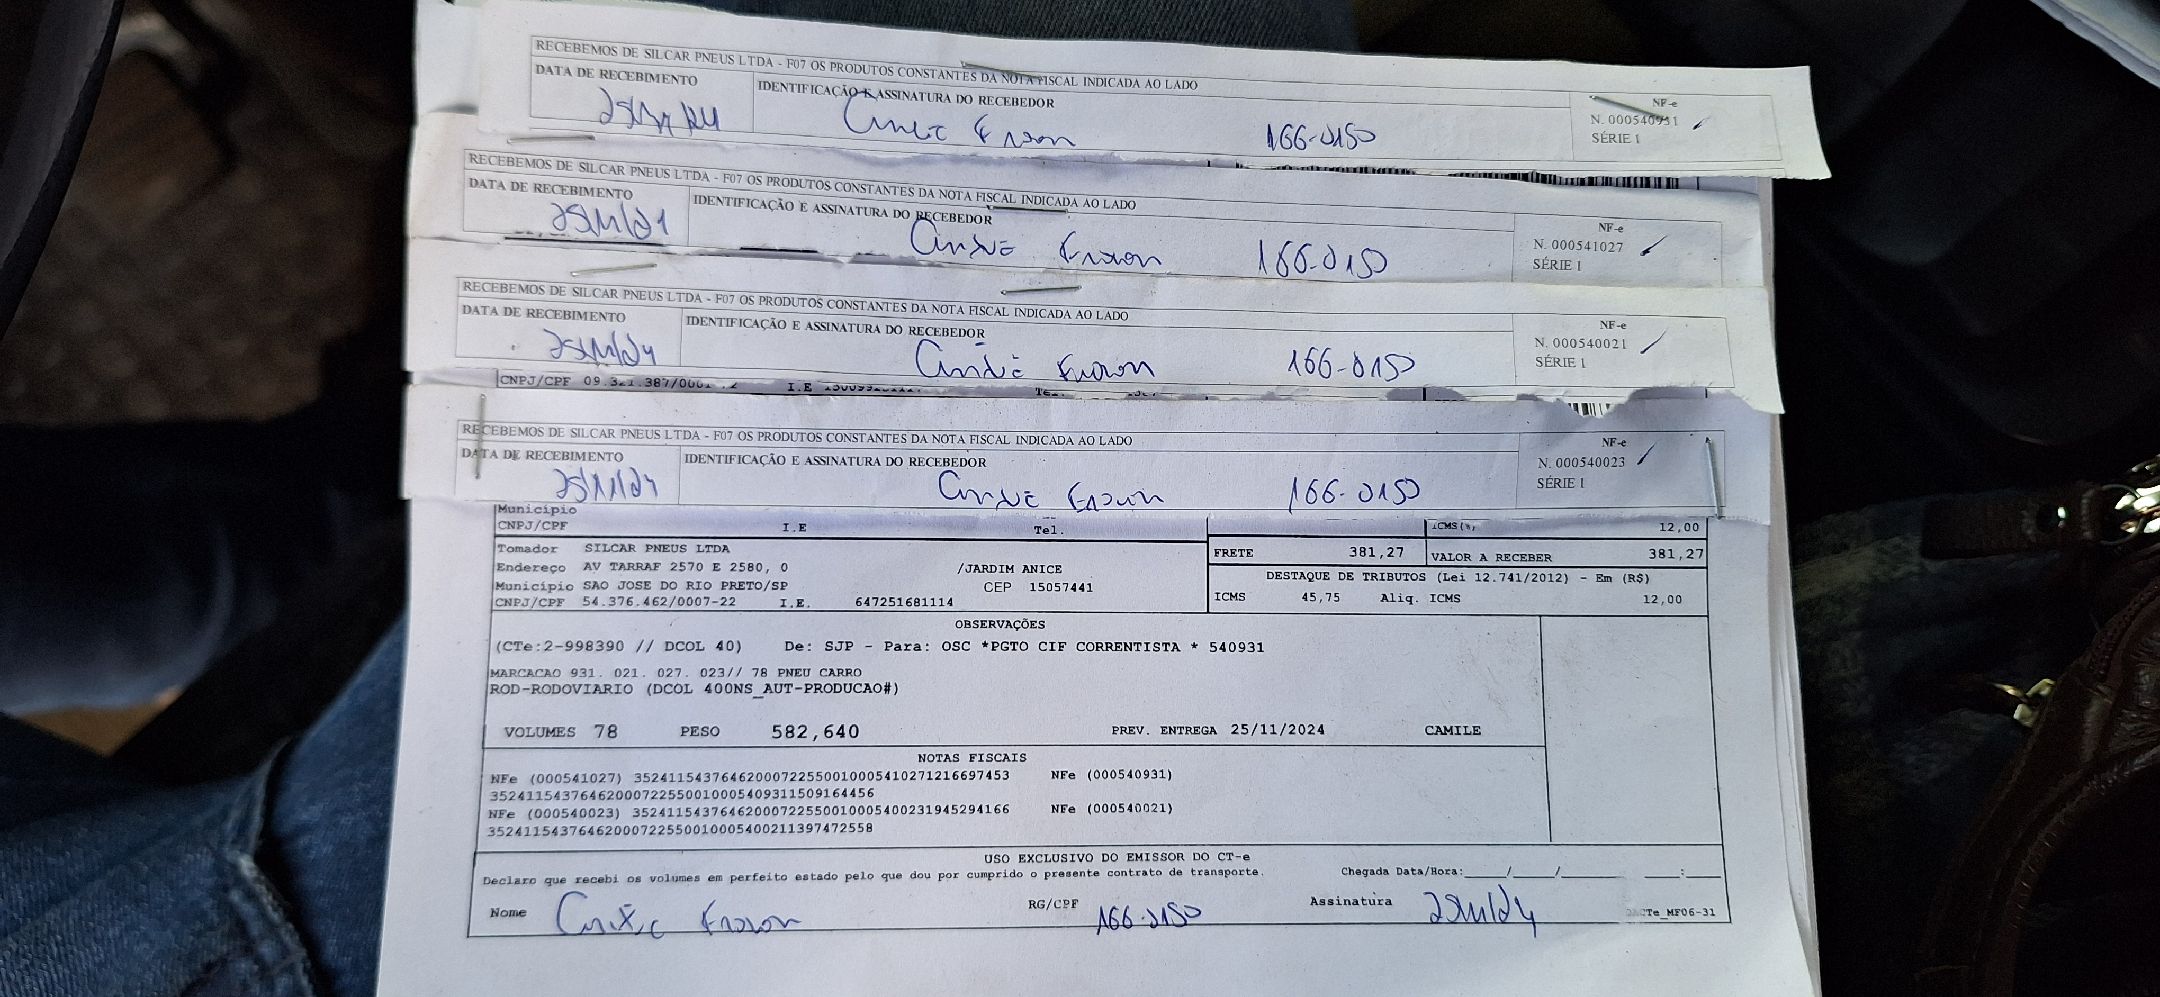 RECEBEMOS DE SILCAR PNEUS LTDA - F07 OS PRODUTOS CONSTANTES DA NOTA FISCAL INDICADA AO LADO
DATA DE RECEBIMENTO IDENTIFICAÇÃO E ASSINATURA DO RECEBEDOR NF-e
166-0150 N. 000540931
SÉRIE 1
RECEBEMOS DE SILCAR PNEUS LTDA - F07 OS PRODUTOS CONSTANTES DA NOTA FISCAL INDICADA AO LADO
DATA DE RECEBIMENTO IDENTIFICAÇÃO E ASSINATURA DO RECEBEDOR NF-e
166-0150 N. 000541027
SÉRIE 1
RECEBEMOS DE SILCAR PNEUS LTDA - F07 OS PRODUTOS CONSTANTES DA NOTA FISCAL INDICADA AO LADO
DATA DE RECEBIMENTO IDENTIFICAÇÃO E ASSINATURA DO RECEBEDOR NF-e
25/11/24 166-0150 N. 000540021
SÉRIE 1
CNPJ/CPF I.E
RECEBEMOS DE SILCAR PNEUS LTDA - F07 OS PRODUTOS CONSTANTES DA NOTA FISCAL INDICADA AO LADO
DATA DE RECEBIMENTO IDENTIFICAÇÃO E ASSINATURA DO RECEBEDOR NF-e
25/11/24 166-0150 N. 000540023
SÉRIE 1
Município
CNPJ/CPF I.E Tel. ICMS(%) 12,00
Tomador SILCAR PNEUS LTDA FRETE 381,27 VALOR A RECEBER 381,27
Endereço AV TARRAF 2570 E 2580, 0 /JARDIM ANICE
DESTAQUE DE TRIBUTOS (Lei 12.741/2012) - Em (R$)
Município SAO JOSE DO RIO PRETO/SP CEP 15057441
CNPJ/CPF 54.376.462/0007-22 I.E. 647251681114 ICMS 45,75 Aliq. ICMS 12,00
OBSERVAÇÕES
(CTe:2-998390 // DCOL 40) De: SJP - Para: OSC *PGTO CIF CORRENTISTA * 540931
MARCACAO 931. 021. 027. 023// 78 PNEU CARRO
ROD-RODOVIARIO (DCOL 400NS_AUT-PRODUCAO#)
VOLUMES 78 PESO 582,640 PREV. ENTREGA 25/11/2024 CAMILE
NOTAS FISCAIS
NFe (000541027) 35241154376462000722550010005410271216697453 NFe (000540931)
35241154376462000722550010005409311509164456
NFe (000540023) 35241154376462000722550010005400231945294166 NFe (000540021)
35241154376462000722550010005400211397472558
USO EXCLUSIVO DO EMISSOR DO CT-e
Declaro que recebi os volumes em perfeito estado pelo que dou por cumprido o presente contrato de transporte. Chegada Data/Hora:____/____/______ ___:___
Nome RG/CPF 166-0150 Assinatura 25/11/24